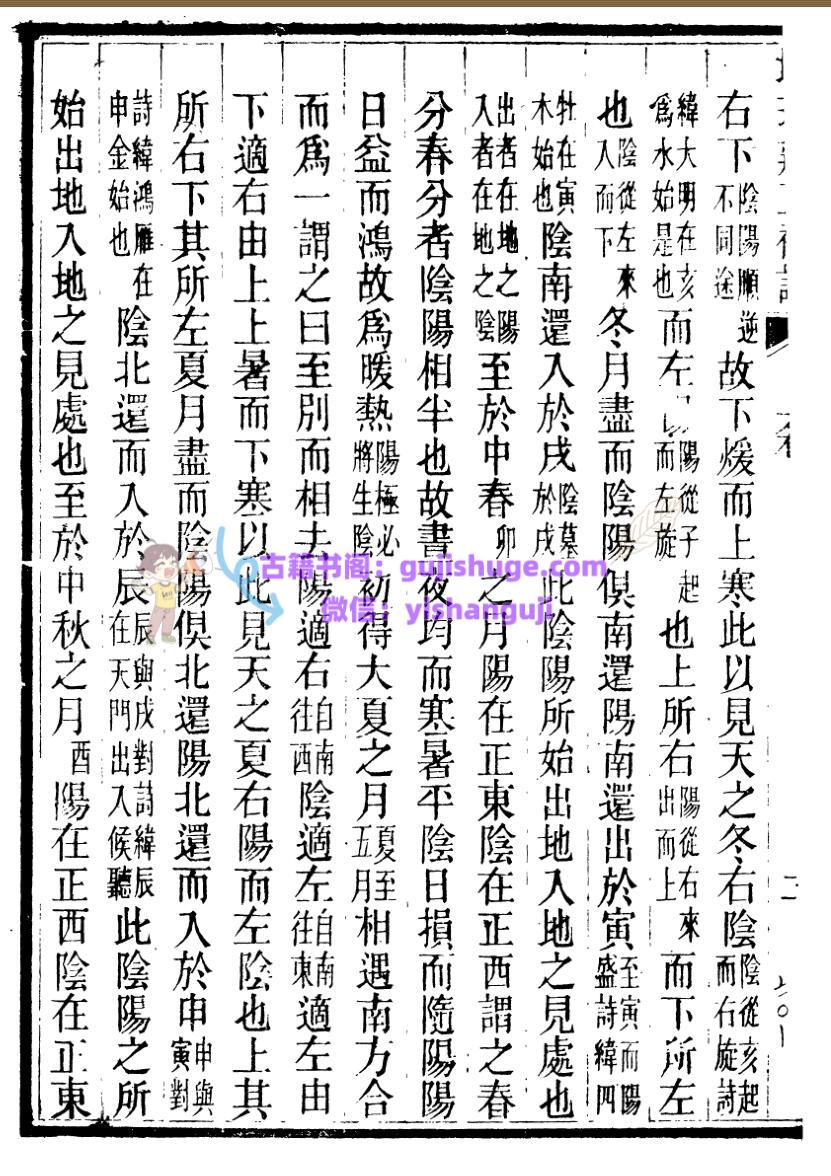 右下陰陽順逆不同途故下煖而上寒此以見天之冬右陰陰從亥起而右旋詩
緯大明在亥爲水始是也而左陽從子起而左旋也上所右陽從右來出而上而下所左
也陰從左來入而下冬月盡而陰陽俱南還陽南還出於寅至寅而陽盛詩緯四
牡在寅木始也陰南還入於戌陰墓於戌此陰陽所始出地入地之見處也
出者在地之陽入者在地之陰至於中春卯之月陽在正東陰在正西謂之春
分春分者陰陽相半也故晝夜均而寒暑平陰日損而隨陽陽
日益而鴻故爲暖熱陽極必將生陰初得大夏之月夏至五月相遇南方合
而爲一謂之曰至別而相去陽適右自南往西陰適左自南往東適左由
下適右由上上暑而下寒以此見天之夏右陽而左陰也上其
所右下其所左夏月盡而陰陽俱北還陽北還而入於申申與寅對
詩緯鴻雁在申金始也陰北還而入於辰辰與戌對詩緯辰在天門出入候聽此陰陽之所
始出地入地之見處也至於中秋之月酉陽在正西陰在正東
二
古籍书阁：gujishuge.com
微信：yishanguji